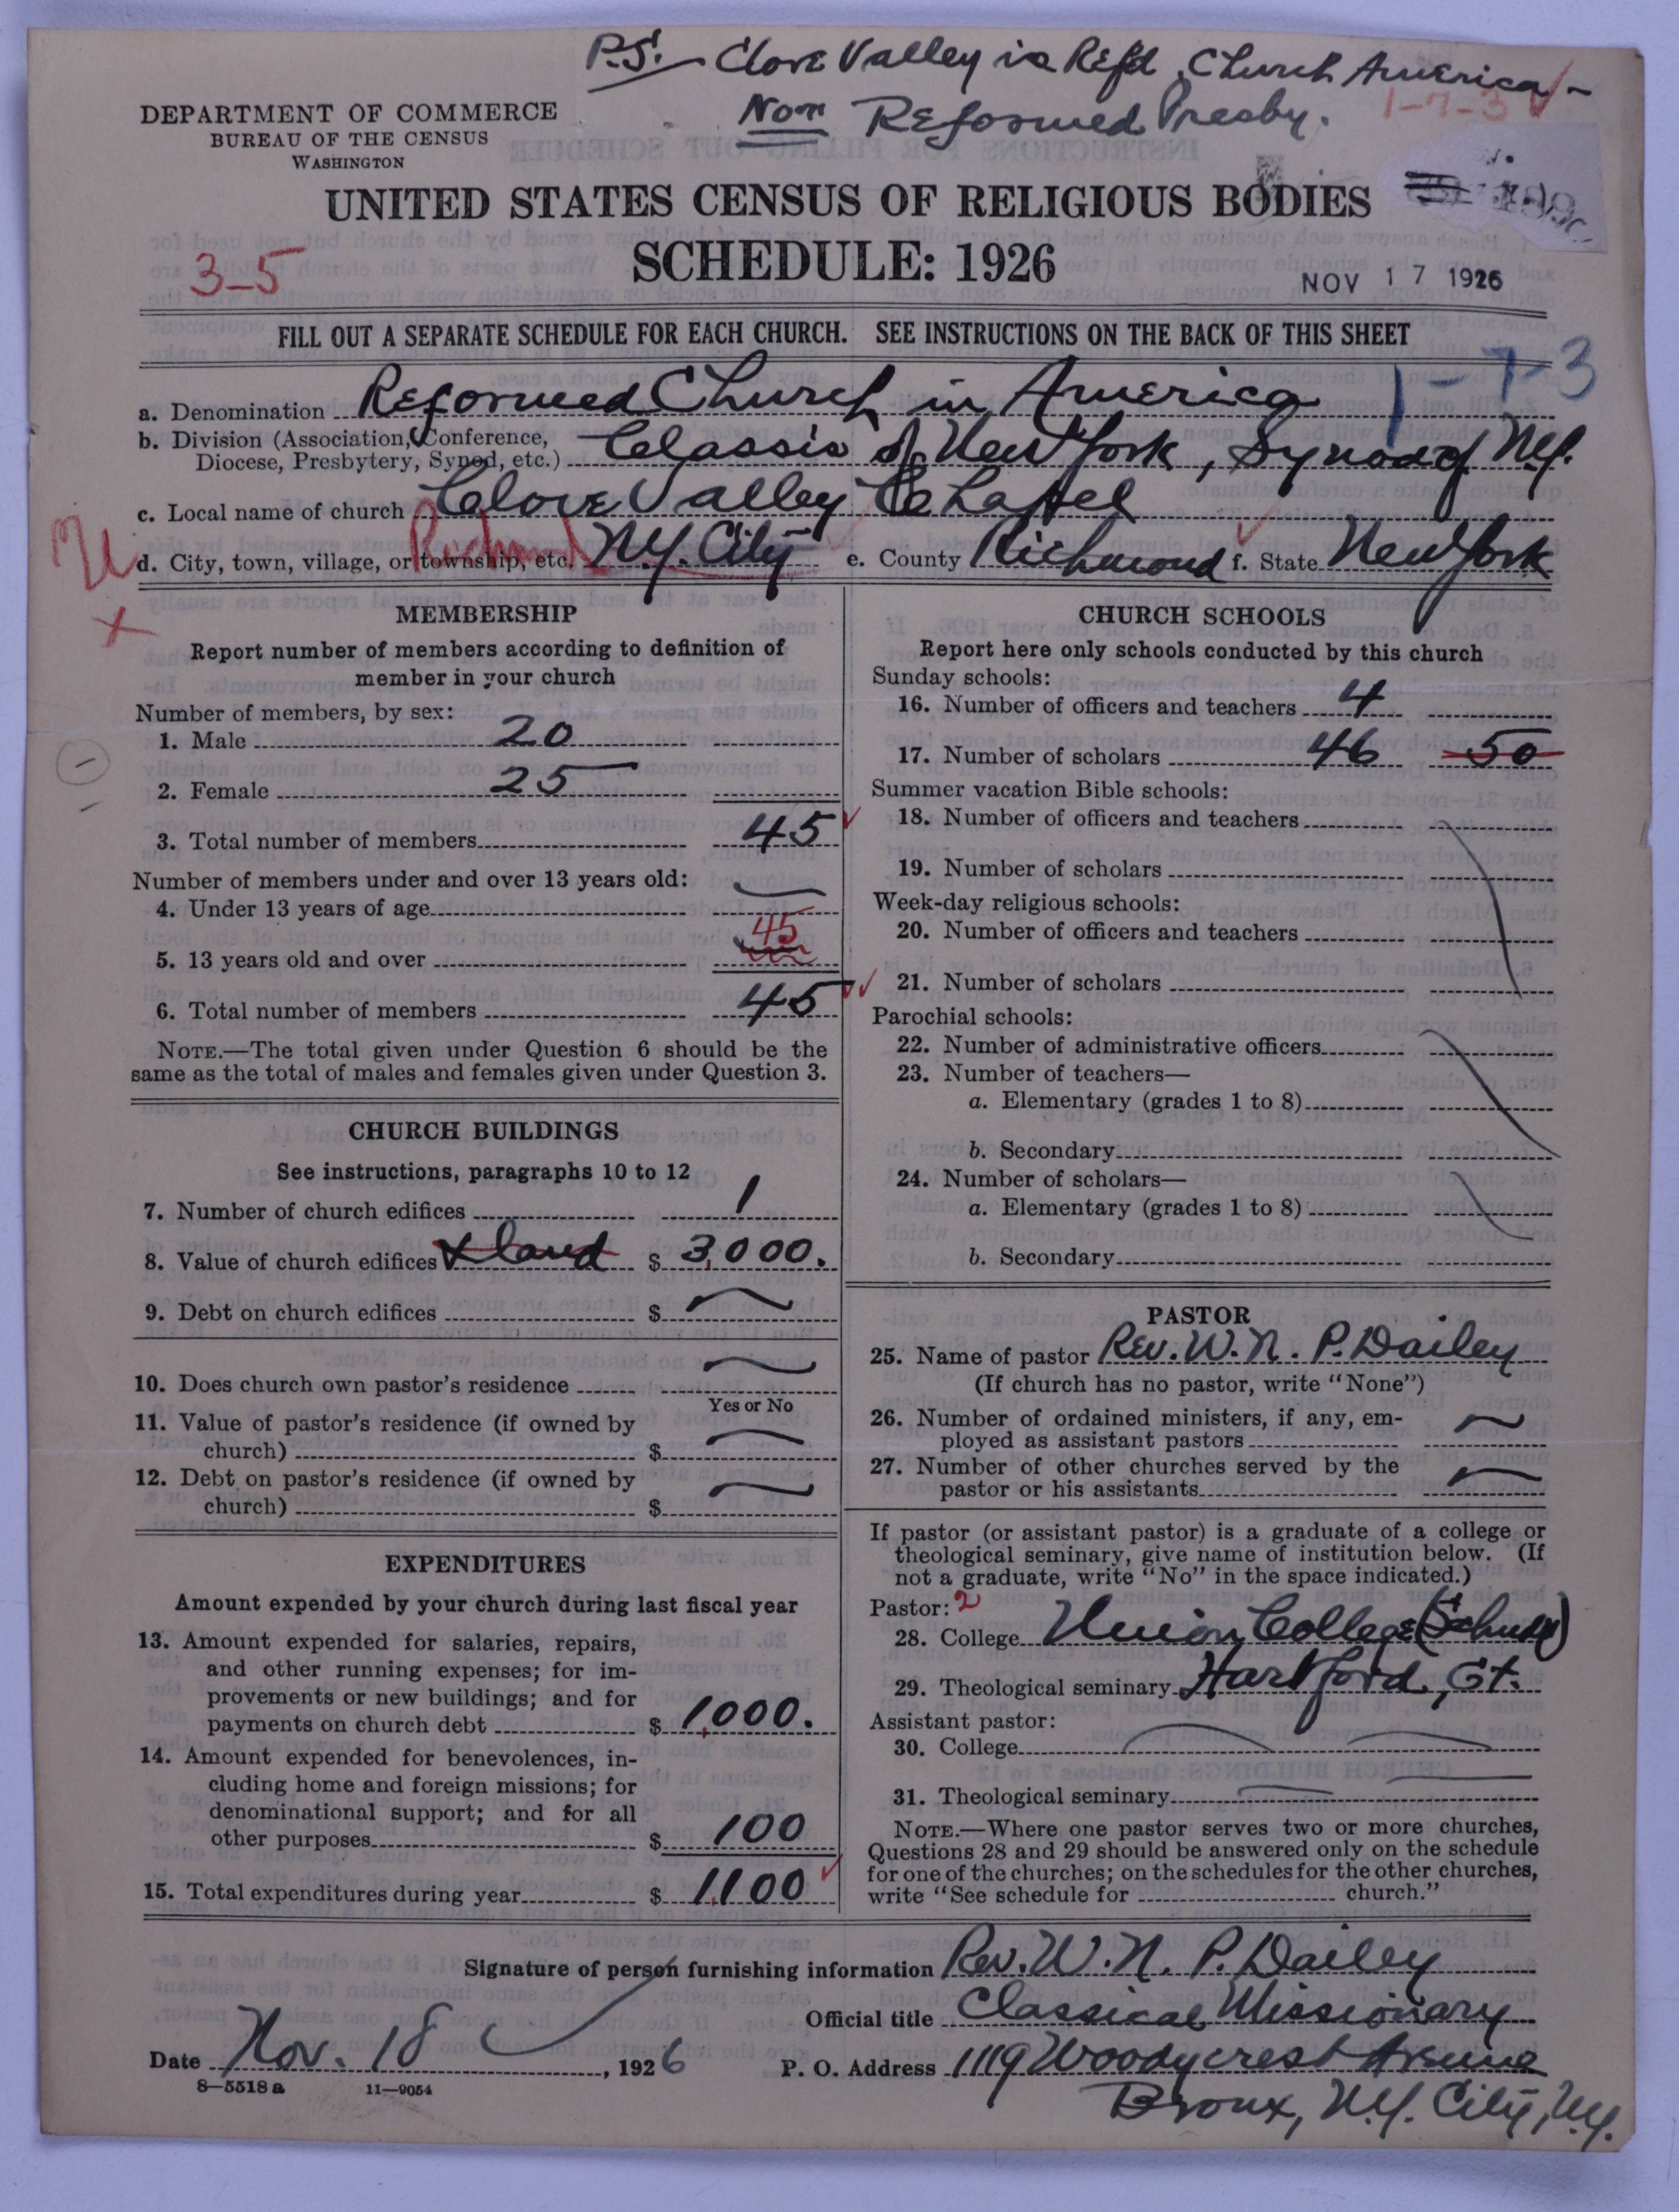 P.S. – Clove Valley is Refd. Church America –
Not Reformed Presby.
1-7-3
DEPARTMENT OF COMMERCE
BUREAU OF THE CENSUS
WASHINGTON
UNITED STATES CENSUS OF RELIGIOUS BODIES
SCHEDULE: 1926
3-5
NOV 17 1926
FILL OUT A SEPARATE SCHEDULE FOR EACH CHURCH. SEE INSTRUCTIONS ON THE BACK OF THIS SHEET
1-7-3
a. Denomination Reformed Church in America
b. Division (Association, Conference,
Diocese, Presbytery, Synod, etc.) Classis of New York, Synod of N.Y.
c. Local name of church Clove Valley Chapel
d. City, town, village, or township, etc. N.Y. City e. County Richmond f. State New York
MEMBERSHIP
Report number of members according to definition of
member in your church
Number of members, by sex:
1. Male 20
2. Female 25
3. Total number of members 45
Number of members under and over 13 years old:
4. Under 13 years of age
5. 13 years old and over 45
6. Total number of members 45
NOTE.—The total given under Question 6 should be the
same as the total of males and females given under Question 3.
CHURCH BUILDINGS
See instructions, paragraphs 10 to 12
7. Number of church edifices 1
8. Value of church edifices & land $ 3,000.
9. Debt on church edifices $
10. Does church own pastor's residence
Yes or No
11. Value of pastor's residence (if owned by
church) $
12. Debt on pastor's residence (if owned by
church) $
EXPENDITURES
Amount expended by your church during last fiscal year
13. Amount expended for salaries, repairs,
and other running expenses; for im-
provements or new buildings; and for
payments on church debt $ 1,000.
14. Amount expended for benevolences, in-
cluding home and foreign missions; for
denominational support; and for all
other purposes $ 100
15. Total expenditures during year $ 1,100
CHURCH SCHOOLS
Report here only schools conducted by this church
Sunday schools:
16. Number of officers and teachers 4
17. Number of scholars 46 50
Summer vacation Bible schools:
18. Number of officers and teachers
19. Number of scholars
Week-day religious schools:
20. Number of officers and teachers
21. Number of scholars
Parochial schools:
22. Number of administrative officers
23. Number of teachers—
a. Elementary (grades 1 to 8)
b. Secondary
24. Number of scholars—
a. Elementary (grades 1 to 8)
b. Secondary
PASTOR
25. Name of pastor Rev. W. N. P. Dailey
(If church has no pastor, write "None")
26. Number of ordained ministers, if any, em-
ployed as assistant pastors
27. Number of other churches served by the
pastor or his assistants
If pastor (or assistant pastor) is a graduate of a college or
theological seminary, give name of institution below. (If
not a graduate, write "No" in the space indicated.)
Pastor: 2
28. College Union College
29. Theological seminary Hartford, Ct.
Assistant pastor:
30. College
31. Theological seminary
NOTE.—Where one pastor serves two or more churches,
Questions 28 and 29 should be answered only on the schedule
for one of the churches; on the schedules for the other churches,
write "See schedule for church."
Signature of person furnishing information Rev. W. N. P. Dailey
Official title Classical Missionary
Date Nov. 18, 1926 P. O. Address 1119 Woodycrest Avenue
8—5518a 11—9054
Bronx, N.Y. City, N.Y.